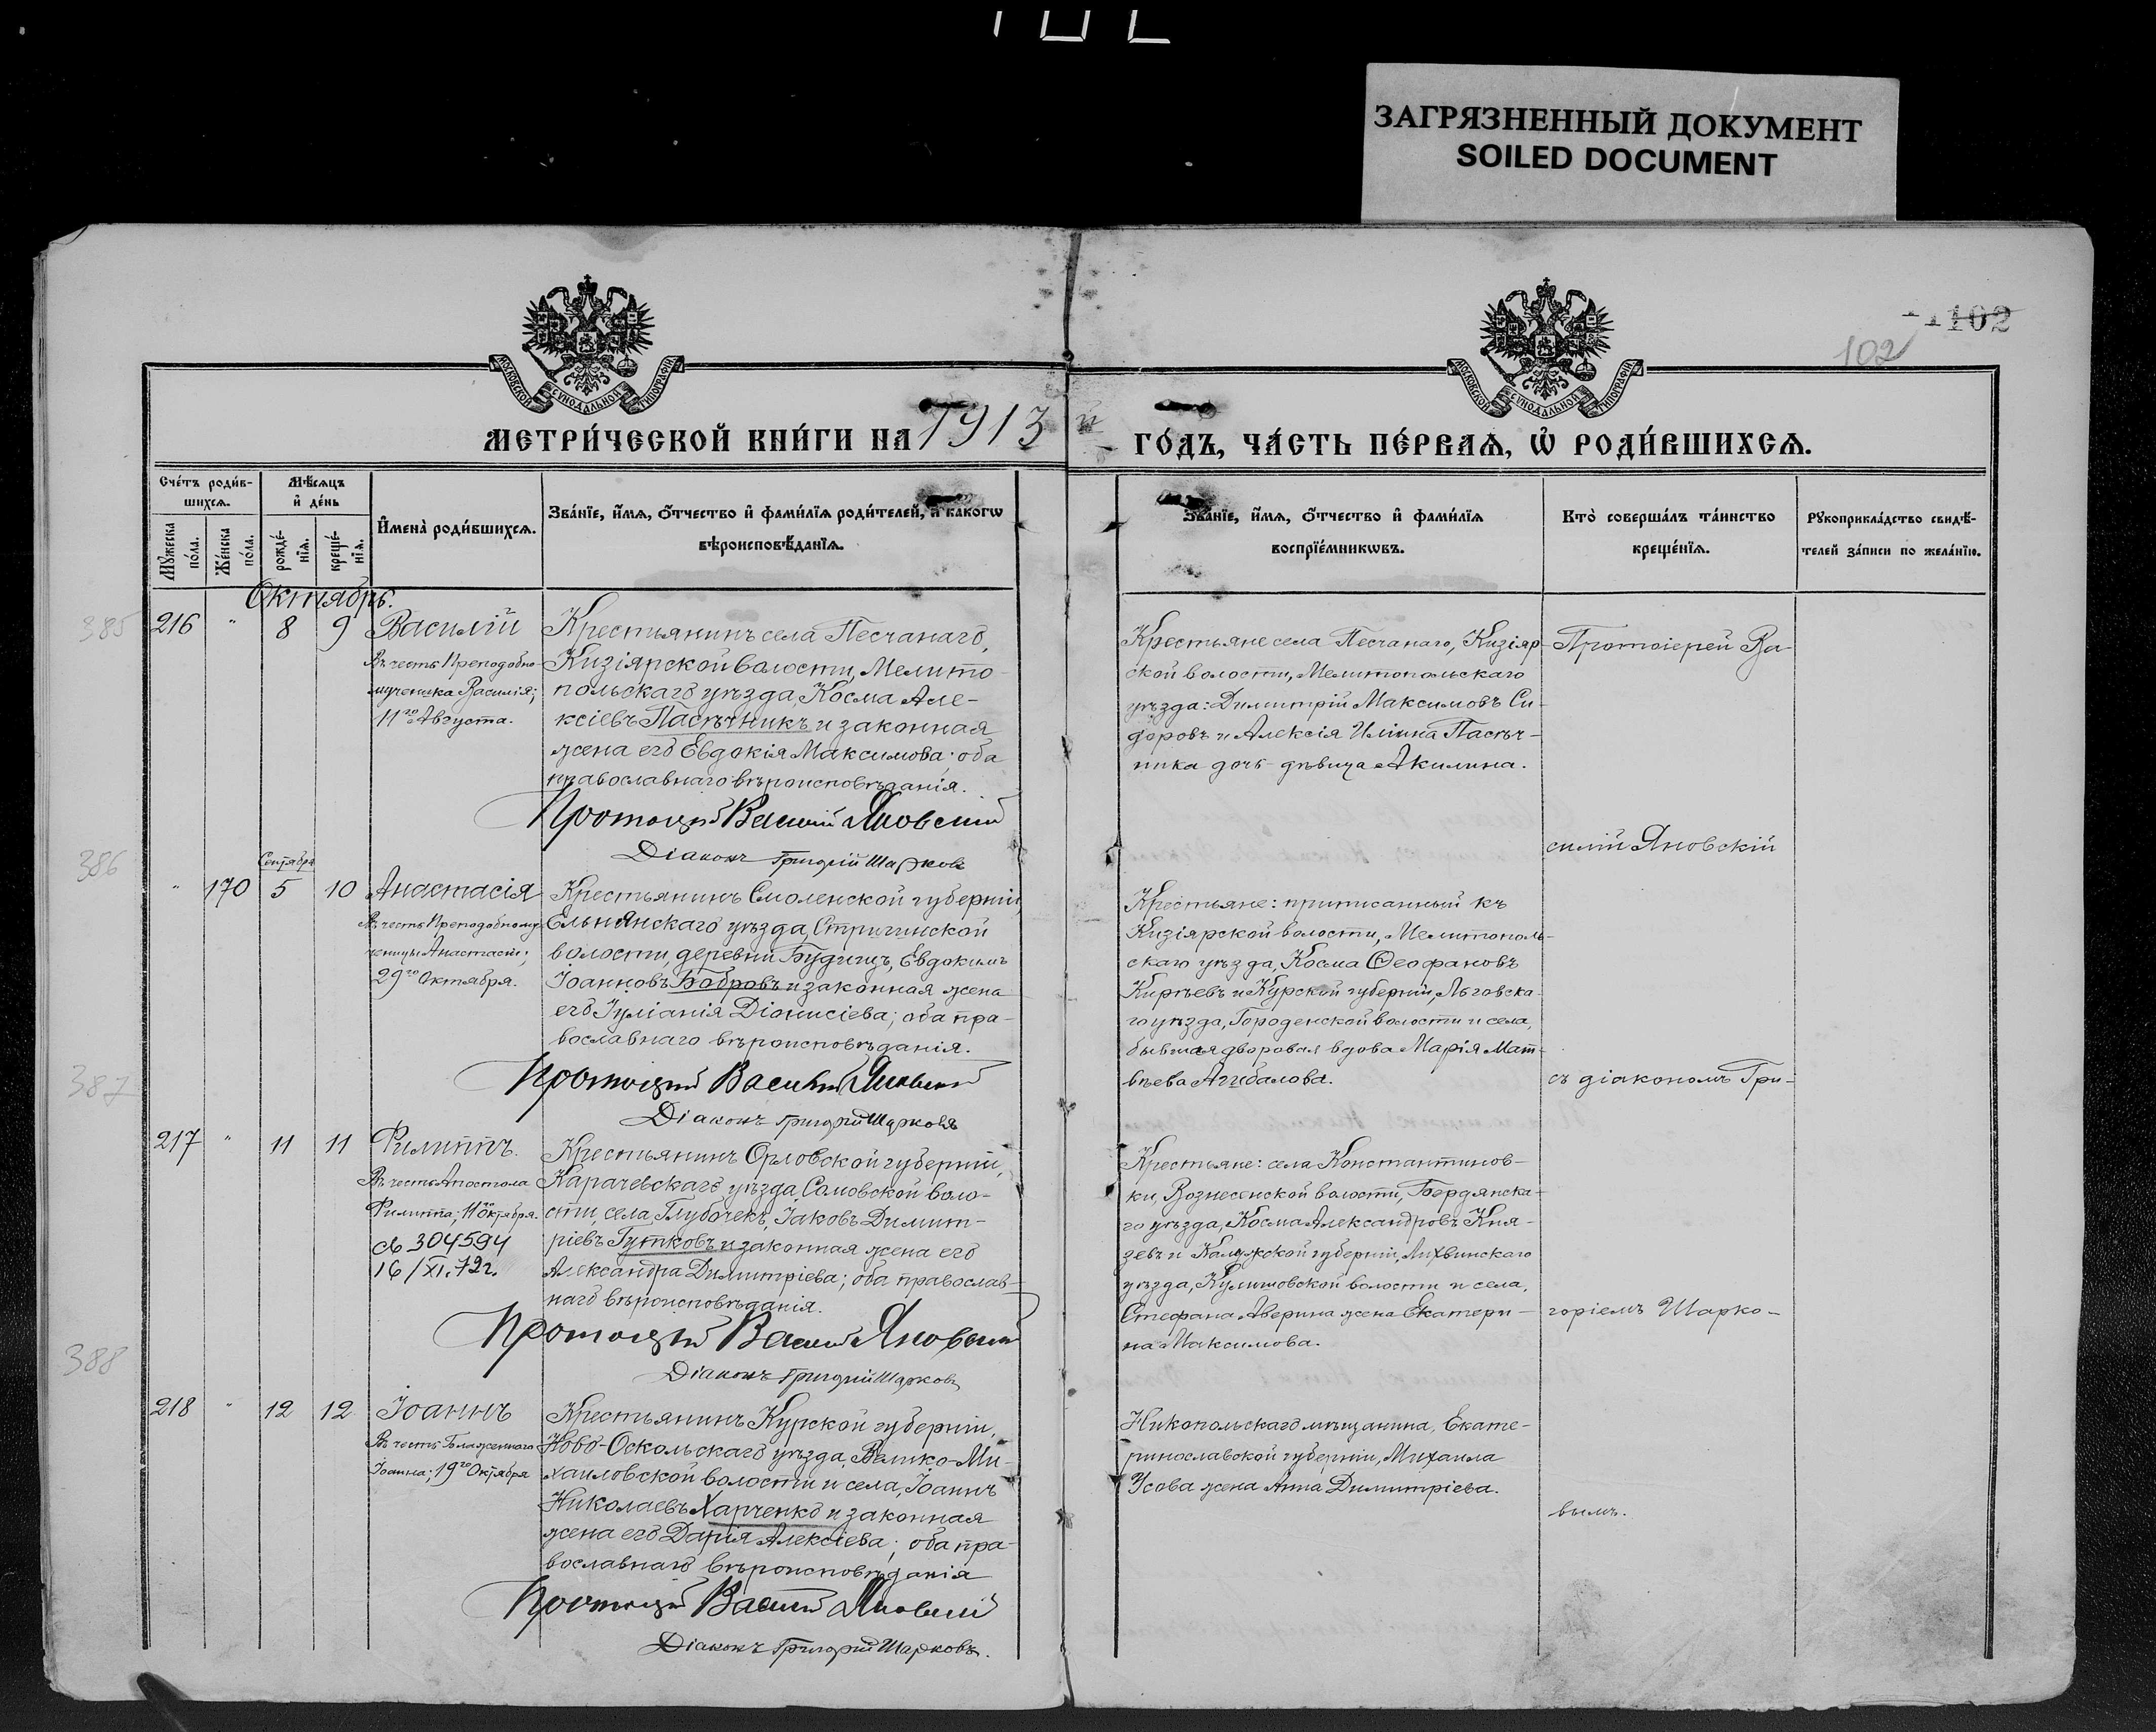 ЗАГРЯЗНЕННЫЙ ДОКУМЕНТ
SOILED DOCUMENT
102
102
МОСКОВСКОЙ СѴНОДАЛЬНОЙ ТИПОГРАФІИ
МОСКОВСКОЙ СѴНОДАЛЬНОЙ ТИПОГРАФІИ
МЕТРИ́ЧЕСКОЙ КНИ́ГИ НА 1913 й ГО́ДЪ, ЧА́СТЬ ПЕ́РВАѦ, Ѡ҆ РОДИ́ВШИХСѦ.
Сче́тъ роди́в-
шихсѧ.
Мꙋ́жеска по́ла.
Же́нска по́ла.
Мѣ́сѧцъ
и҆ де́нь
рожде́-
нїѧ.
креще́-
нїѧ.
И҆мена̀ роди́вшихсѧ.
Зва́нїе, и҆́мѧ, ѻ҆́тчество и҆ фами́лїѧ роди́телей, и҆ како́гѡ
вѣроисповѣ́данїѧ.
Зва́нїе, и҆́мѧ, ѻ҆́тчество и҆ фами́лїѧ
воспрїе́мникѡвъ.
Кто̀ соверша́лъ та́инство
креще́нїѧ.
Рꙋкоприкла́дство свидѣ́-
телей за́писи по жела́нїю.
Октябрь.
385
216 " 8 9 Василій
Въ честь Преподобно-
мученика Василія;
11го Августа.
Крестьянинъ села Песчанаго,
Кизіярской волости, Мелито-
польскаго уѣзда, Косма Але-
ксіевъ Пасѣчникъ и законная
жена его Евдокія Максимова; оба
православнаго вѣроисповѣданія.
Протоіерей Василій Яновскій
Діаконъ Григорій Шарковъ
Крестьяне села Песчанаго, Кизіяр-
ской волости, Мелитопольскаго
уѣзда: Димитрій Максимовъ Си-
доровъ и Алексія Иліина Пасѣч-
ника дочь - дѣвица Акилина.
Протоіерей Ва-
силій Яновскій
386
Сентября
" 170 5 10 Анастасія
Въ честь Преподобному-
ченицы Анастасіи;
29го Октября.
Крестьянинъ Смоленской губерніи,
Ельнянскаго уѣзда, Стригинской
волости, деревни Будищъ, Евдокимъ
Іоанновъ Бобровъ и законная жена
его Іуліанія Діонисіева; оба пра-
вославнаго вѣроисповѣданія.
Протоіерей Василій Яновскій
Діаконъ Григорій Шарковъ
Крестьяне: приписанный къ
Кизіярской волости, Мелитополь-
скаго уѣзда, Косма Ѳеофановъ
Кирѣевъ и Курской губерніи, Льговска-
го уѣзда, Городенской волости и села,
бывшая дворовая вдова Марія Мат-
вѣева Агибалова.
съ діакономъ Гри-
387
217 " 11 11 Филиппъ.
Въ честь Апостола
Филиппа; 11 Октября.
304594
16/XI.72г.
Крестьянинъ Орловской губерніи,
Карачевскаго уѣзда, Самовской воло-
сти, села Глубочекъ, Іаковъ Димит-
ріевъ Гутковъ и законная жена его
Александра Димитріева; оба православ-
наго вѣроисповѣданія.
Протоіерей Василій Яновскій
Діаконъ Григорій Шарковъ
Крестьяне: села Константинов-
ки, Вознесенской волости, Бердянска-
го уѣзда, Косма Александровъ Кня-
зевъ и Калужской губерніи, Лихвинскаго
уѣзда, Кулешовской волости и села,
Стефана Аверина жена Екатери-
на Максимова.
горіемъ Шарко-
388
218 " 12 12 Іоаннъ
Въ честь Блаженнаго
Іоанна; 19го Октября
Крестьянинъ Курской губерніи,
Ново-Оскольскаго уѣзда, Велико-Ми-
хаиловской волости и села, Іоаннъ
Николаевъ Харченко и законная
жена его Дарія Алексіева; оба пра-
вославнаго вѣроисповѣданія
Протоіерей Василій Яновскій
Діаконъ Григорій Шарковъ.
Никопольскаго мѣщанина, Екате-
ринославской губерніи, Михаила
Усова жена Анна Димитріева.
вымъ.